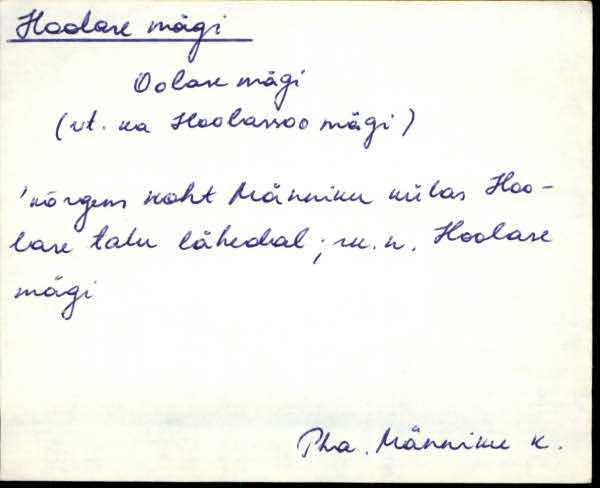 Hoolase mägi
Oolase mägi
(vt. ka Hoolassoo mägi)
'kõrgem koht Männiku külas Hoo-
lase talu lähedal; ru. n. Hoolase
mägi
Pha. Männiku k.